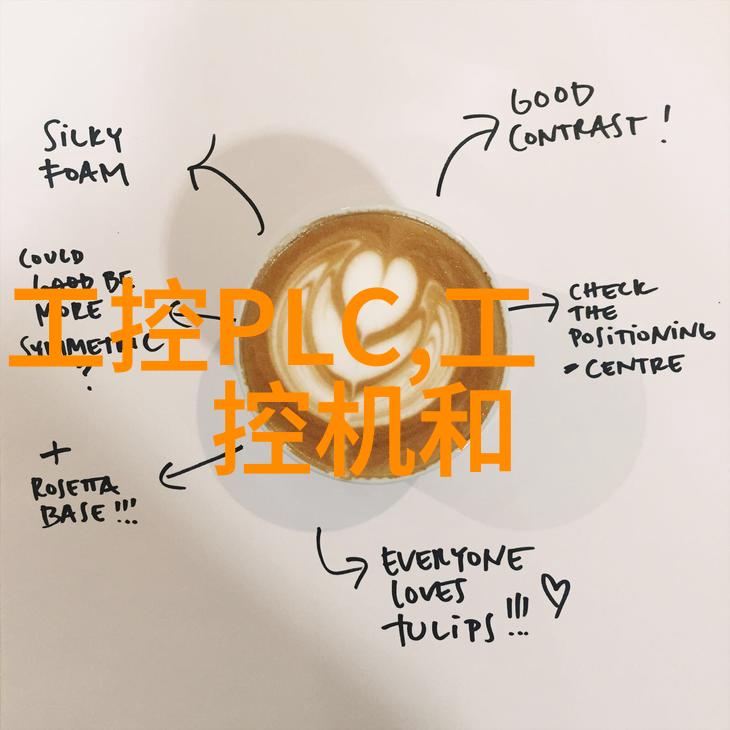 SILKY
FOAM
GOOD
CONTRAST!
COULD
GOOD BE
MORE
SYMMETRIC
?
工控PLC,工
控机和
CHECK
THE
POSITIONING
- CENTRE
+
ROSETTA
BASE!!!
EVERYONE
LOVES
TULIPS!!! ♡